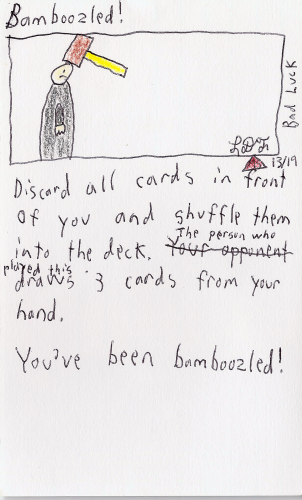 Bamboozled!
Bad Luck
13/19
Discard all cards in front
of you and shuffle them
into the deck. The person who
played this draws 3 cards from your
hand.
You've been bamboozled!